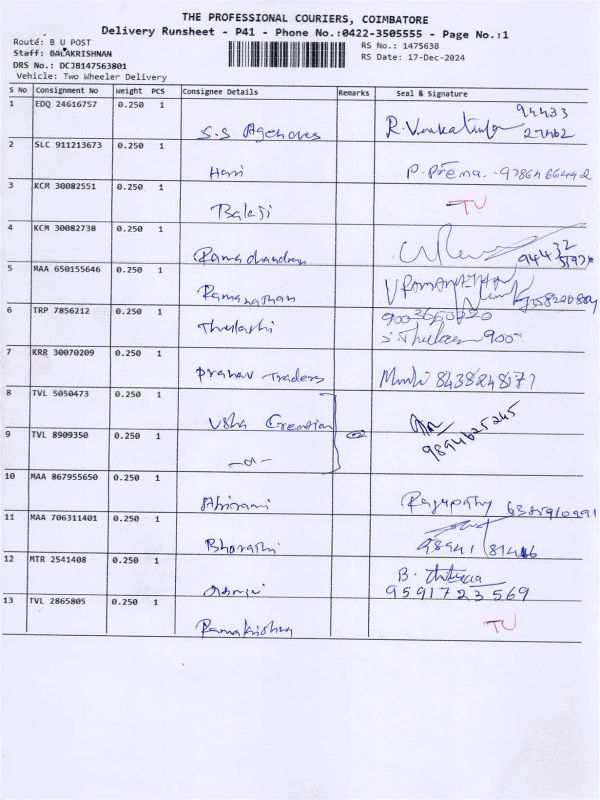 THE PROFESSIONAL COURIERS, COIMBATORE
Delivery Runsheet - P41 - Phone No.:0422-3505555 - Page No.:1
Route: B U POST
Staff: BALAKRISHNAN
DRS No.: DCJB147563801
Vehicle: Two Wheeler Delivery
RS No.: 1475638
RS Date: 17-Dec-2024
S No Consignment No Weight PCS Consignee Details Remarks Seal & Signature
1 EDQ 24616757 0.250 1
S.S Agencies 94433
2 SLC 911213673 0.250 1
Hari P. Prema.
3 KCM 30082551 0.250 1
Balaji TU
4 KCM 30082738 0.250 1
Ramachandran 94432
5 MAA 650155646 0.250 1
Ramanathan
6 TRP 7856212 0.250 1
Thulashi
7 KRR 30070209 0.250 1
Pranav Traders 8438248177
8 TVL 5050473 0.250 1
Usha Creation
9 TVL 8909350 0.250 1
9894625245
10 MAA 867955650 0.250 1
Abirami
11 MAA 706311401 0.250 1
Bharathi
12 MTR 2541408 0.250 1
B.
9591723569
13 TVL 2865805 0.250 1
Ramakrishna TU